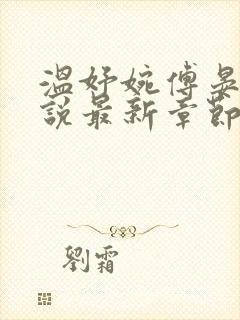 溫妤婉傅晏
說最新章節
劉霜